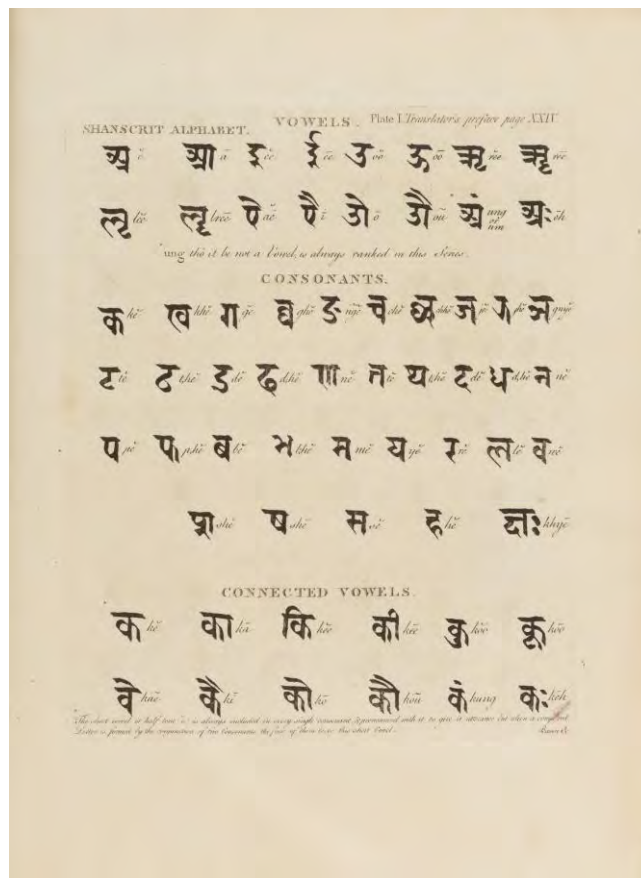 VOWELS. Plate I. Translator's preface page XXIV.
SHANSCRIT ALPHABET.
अ ĕ आ ā इ ĕĕ ई ēē उ ŏŏ ऊ ōō ऋ rĕĕ ॠ rēē
ऌ lĕĕ ॡ lrēē ऐ aē ऐ ī ओ ō औ oū अं ung or um अः ĕh
ung thō it be not a Vowel, is always ranked in this Series.
CONSONANTS.
क kĕ ख khĕ ग gĕ घ ghĕ ङ ngĕ च chĕ छ chhĕ ज jĕ झ jhĕ ञ
ट tĕ ठ t,hĕ ड dĕ ढ d,hĕ ण nĕ त tĕ थ t,hĕ द dĕ ध d,hĕ न nĕ
प pĕ फ p,hĕ ब bĕ भ bhĕ म mĕ य yĕ र rĕ ल lĕ व
श shĕ ष shĕ स sĕ ह hĕ क्षः khyĕ
CONNECTED VOWELS.
क kĕ का kā कि kĕĕ की kēē कु kŏŏ कू kōō
के kaē कै kī को kō कौ koū कं kung कः kĕh
The short vowel or half tone ĕ is always included in every single consonant, & pronounced with it to give it utterance but when a compound
Letter is formed by the conjunction of two Consonants the first of them loses this short Vowel.